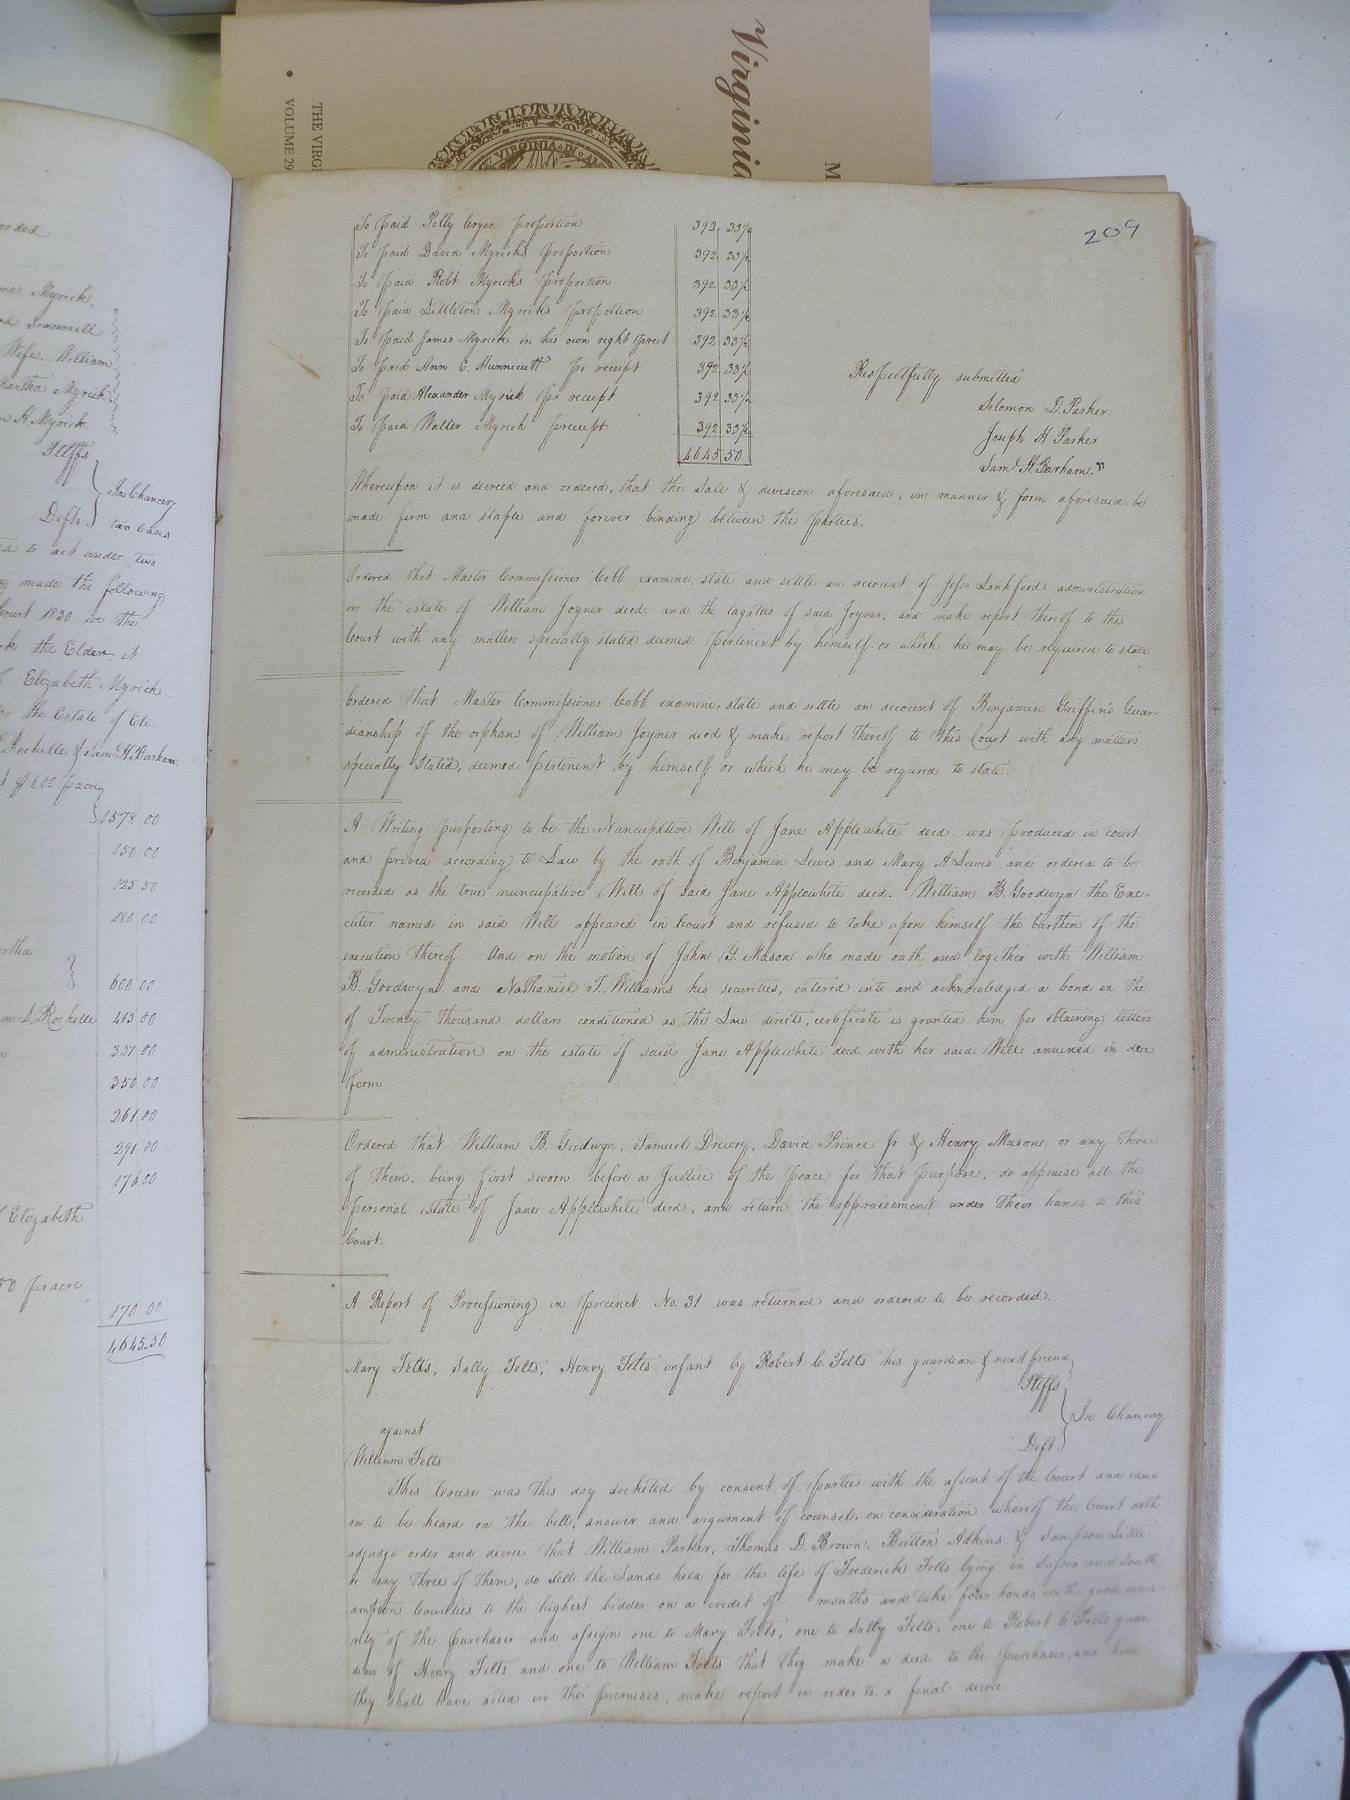 Virginia
M
THE VIRG
VOLUME 29
VIRGINIA IN A
209
orded
mes Myrick.
Scammell
Wife. William
Martha Myrick
n H. Myrick
Pltffs
In Chancery
Defts
two cases
to act under two
made the following
Court 1830 we the
the Elder, it
Elizabeth Myrick
the Estate of
Rochelle & Sam H. Barham
1578 00
150 00
125 50
180 00
rtha
600 00
Rochelle 413 00
351 00
350 00
261 00
291 00
176 00
Elizabeth
50 pr acre
170 00
4,645.50
To paid Polly Cryer proportion 392. 33½
To paid David Myricks proportion 392 33½
To paid Robt. Myricks proportion 392 33½
To paid Littleton Myricks proportion 392 33½
To paid James Myrick in his own right prect 392 33½
To paid Ann E. Hunnicutt pr receipt 392 33½
To paid Alexander Myrick pr receipt 392 33½
To paid Walter Myrick preceipt 392 33½
4645 50
Respectfully submitted
Solomon D. Parker
Joseph H Parker
Saml. H. Barham."
Whereupon it is decreed and ordered, that the Sale & division aforesaid, in manner & form aforesaid be
made firm and staple and forever binding between the parties.
Ordered that Master Commissioner Cobb examine, state and settle an account of Jesse Lankfords administration
on the estate of William Joyner decd. and the lagatees of said Joyner, and make report thereof to the
Court with any matters specially stated deemed pertenent by himself or which he may be required to state
Ordered that Master Commissioner Cobb examine, state and settle an account of Benjamin Griffin's Guar-
dianship of the orphans of William Joyner decd & make report thereof to this Court with any matters
specially stated, deemed pertenent by himself or which he may be required to state.
A Writing purporting to be the Nuncupative Will of Jane Applewhite decd. was produced in court
and proved according to Law by the oath of Benjamin Lewis and Mary A Lewis and ordered to be
recorded as the true nuncupative Will of said Jane Applewhite decd. William B. Goodwyn the Exe-
cutor named in said Will appeared in Court and refused to take upon himself the burthen of the
execution thereof. And on the motion of John Y. Mason who made oath and together with William
B. Goodwyn and Nathaniel T. Williams his securities, entered into and acknowledged a bond in the
of Twenty thousand dollars conditioned as the Law directs, certificate is granted him for obtaining letters
of administration on the estate of said Jane Applewhite decd with her said Will annexed in due
form.
Ordered that William B. Goodwyn, Samuel Drewry, David Prince Jr & Henry Mason or any three
of them, being first sworn before a Justice of the peace for that purpose, do appraise all the
personal estate of Jane Applewhite decd, and return the appraisement under their hands to this
Court.
A Report of Processioning in precinct No. 31 was returned and ordered to be recorded.
Mary Felts, Sally Felts, Henry Felts infant by Robert C. Felts his guardian & next friend,
Pltffs
against
In Chancery
William Felts
Deft
This Cause was this day docketed by consent of parties with the assent of the Court and came
on to be heard on the bill, answer and argument of counsel, on consideration whereof the Court doth
adjudge order and decree that William Parker, Thomas D. Brown, Britton Adkins & Sampson Little
or any three of them, do sell the Lands held for the life of Frederick Felts lying in Sussex and South
ampton Counties to the highest bidder on a credit of months and take four bonds with good secu
rity of the purchaser and assign one to Mary Felts, one to Sally Felts, one to Robert C. Felts guar
dian of Henry Felts and one to William Felts that they make a deed to the purchaser, and how
they shall have acted in the premises, make report in order to a final decree